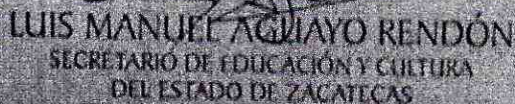 LUIS MANUEL AGUAYO RENDÓN
SECRETARIO DE EDUCACIÓN Y CULTURA
DEL ESTADO DE ZACATECAS